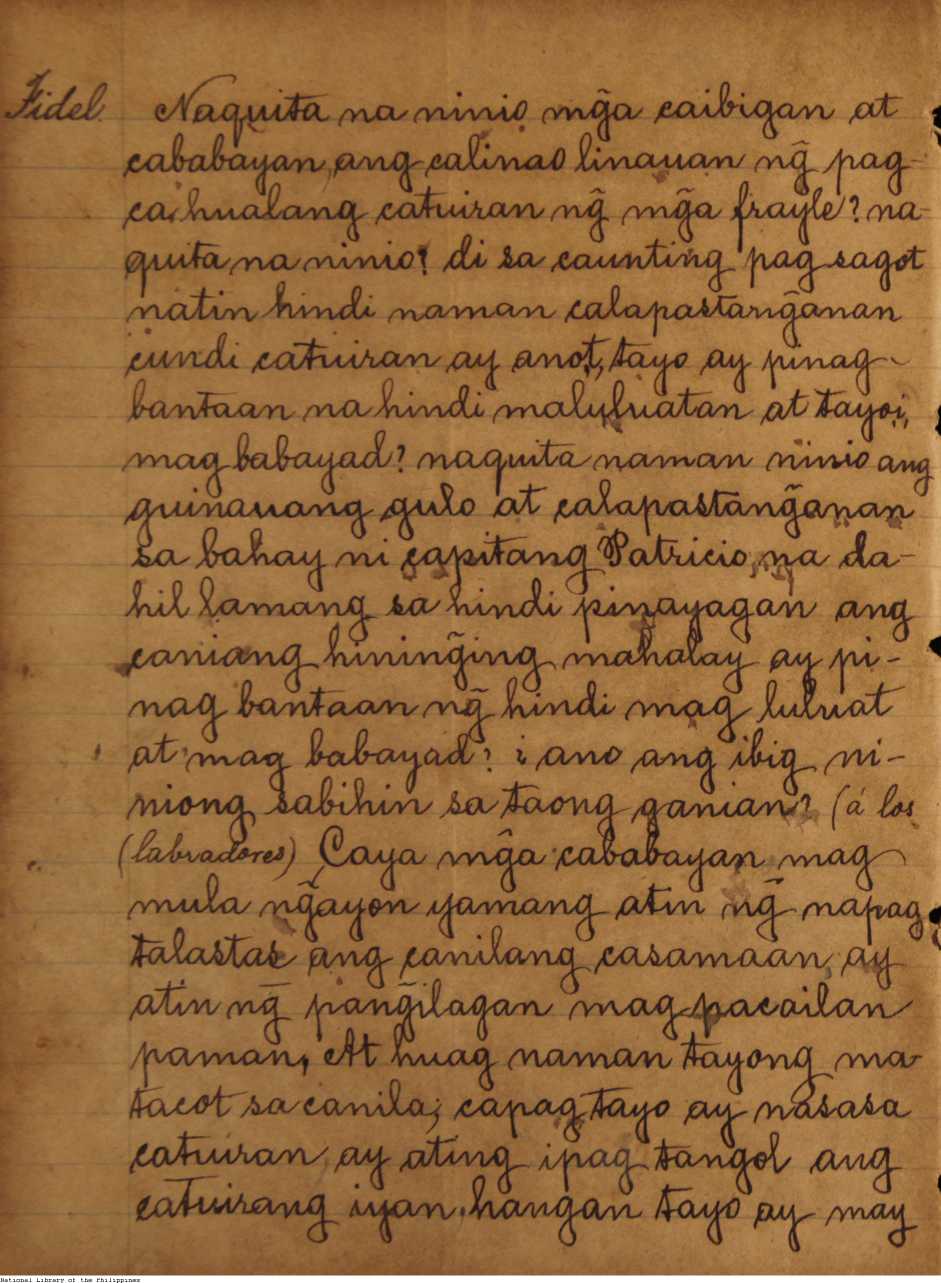 Fidel Naquita na ninio mg̃a caibigan at
cababayan, ang calinao linauan ng̃ pag-
ca hualang catuiran ng̃ mg̃a frayle? na-
quita na ninio? di sa caunting pag sagot
natin hindi naman calapastang̃anan
cundi catuiran ay anot, tayo ay pinag-
bantaan na hindi maluluatan at tayoi,
mag babayad? naquita naman ninio ang
guinauang gulo at calapastang̃anan
sa bahay ni capitang Patricio, na da-
hil lamang sa hindi pinayagan ang
caniang hining̃ing mahalay ay pi-
nag bantaan ng̃ hindi mag luluat
at mag babayad? ¿ ano ang ibig ni-
niong sabihin sa taong ganian? (á los
(labradores) Caya mg̃a cababayan mag
mula ng̃ayon yamang atin ng̃ napag
talastas ang canilang casamaan, ay
atin ng̃ pang̃ilagan mag pacailan
paman, At huag naman tayong ma-
tacot sa canila; capag tayo ay nasasa
catuiran, ay ating ipag tangol ang
catuirang iyan, hangan tayo ay may
National Library of the Philippines